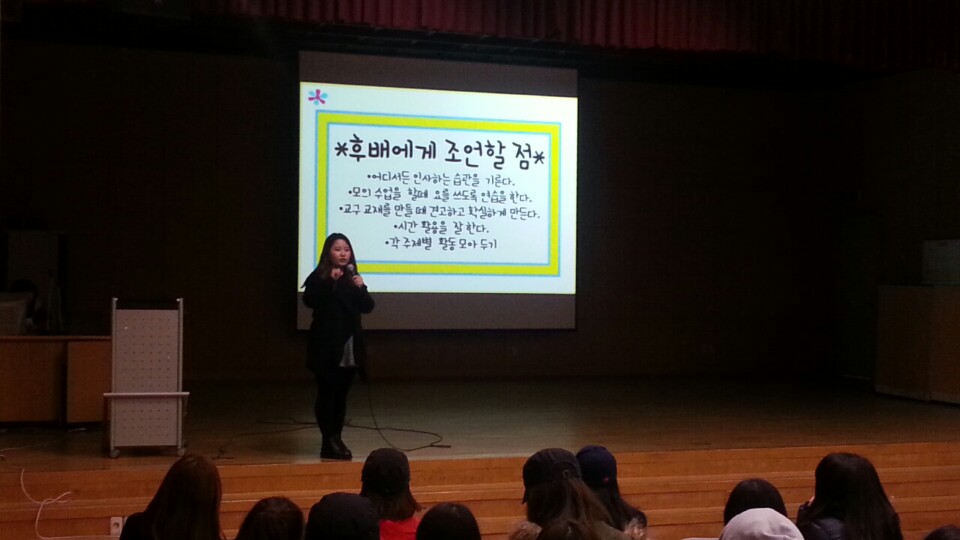 *후배에게 조언할 점*
•어디서든 인사하는 습관을 기른다.
•모의 수업을 할때 요를 쓰도록 연습을 한다.
•교구 교재를 만들 때 견고하고 확실하게 만든다.
•시간 활용을 잘 한다.
•각 주제별 활동 모아 두기